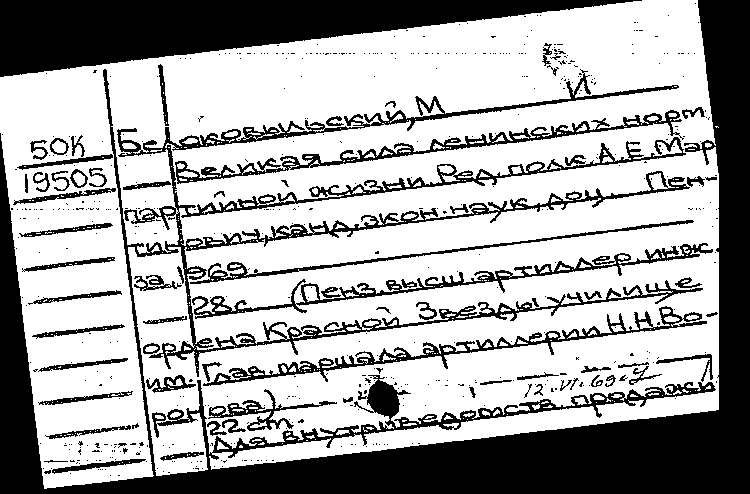 И
50К Белоковыльский, М
19505 Великая сила ленинских норм
партийной жизни. Ред. полк. А.Е.Мар
тинович, канд. экон. наук, доц. Пен-
за, 1969.
28с (Пенз. высш. артиллер. инж.
ордена Красной Звезды училище
им. Глав. маршала артиллерии Н.Н.Во-
ронова)
12.VI.69г
22 см.
Для внутриведомств продажи